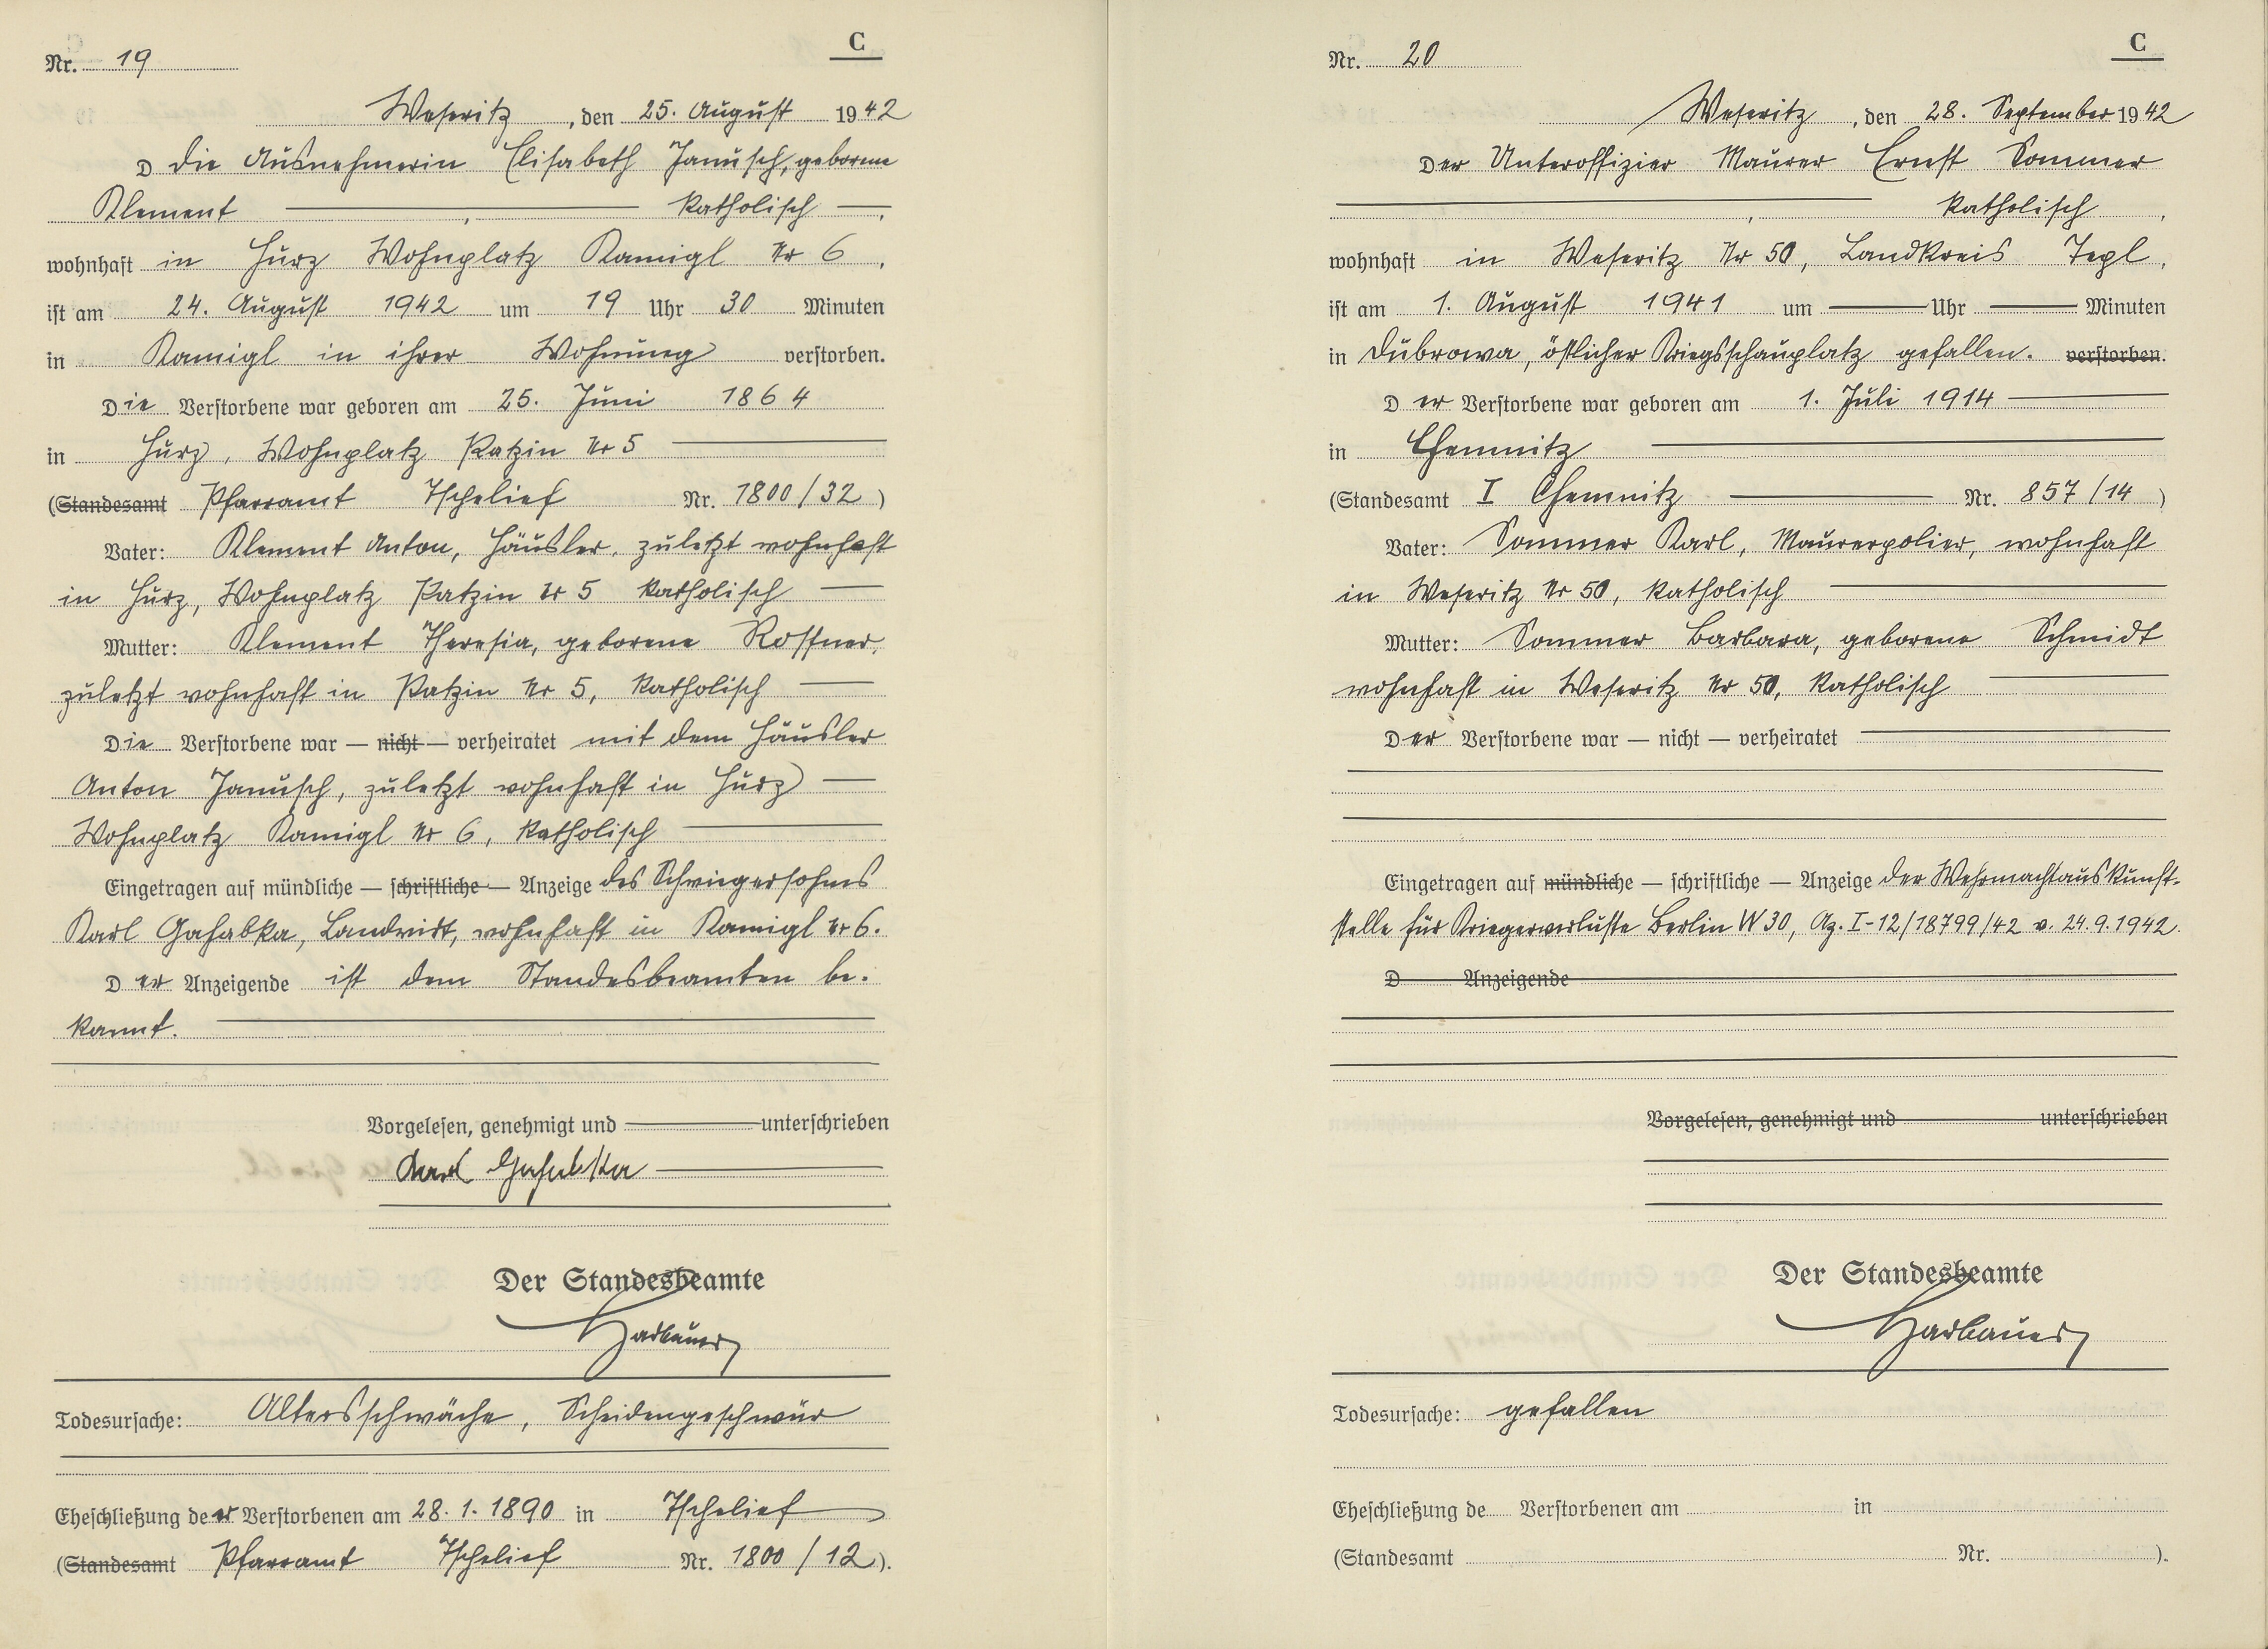 C
Nr. 19
Weseritz, den 25. August 1942
D die Ausnehmerin Elisabeth Janusch, geborene
Klement katholisch,
wohnhaft in Hurz Wohnplatz Ramigl Nr 6,
ist am 24. August 1942 um 19 Uhr 30 Minuten
in Ramigl in ihrer Wohnung verstorben.
Die Verstorbene war geboren am 25. Juni 1864
in Hurz, Wohnplatz Patzin Nr 5
(Standesamt Pfarramt Tschelief Nr. 1800/32)
Vater: Klement Anton, Häusler, zuletzt wohnhaft
in Hurz, Wohnplatz Patzin Nr 5 katholisch
Mutter: Klement Theresia, geborene Rossner,
zuletzt wohnhaft in Patzin Nr 5, katholisch
Die Verstorbene war — nicht — verheiratet mit dem Häusler
Anton Janusch, zuletzt wohnhaft in Hurz
Wohnplatz Ramigl Nr 6, katholisch
Eingetragen auf mündliche — schriftliche — Anzeige des Schwiegersohnes
Karl Gahabka, Landwirt, wohnhaft in Ramigl Nr 6.
Der Anzeigende ist dem Standesbeamten be-
kannt.
Vorgelesen, genehmigt und unterschrieben
Karl Gahabka
Der Standesbeamte
Harbauer
Todesursache: Altersschwäche, Scheidengeschwür
Eheschließung der Verstorbenen am 28. 1. 1890 in Tschelief
(Standesamt Pfarramt Tschelief Nr. 1800/12).
C
Nr. 20
Weseritz, den 28. September 1942
Der Unteroffizier Maurer Ernst Sommer
katholisch,
wohnhaft in Weseritz Nr 50, Landkreis Tepl,
ist am 1. August 1941 um Uhr Minuten
in Dubrowa, östlicher Kriegsschauplatz gefallen. verstorben.
Der Verstorbene war geboren am 1. Juli 1914
in Chemnitz
(Standesamt I Chemnitz Nr. 857/14)
Vater: Sommer Karl, Maurerpolier, wohnhaft
in Weseritz Nr 50, katholisch
Mutter: Sommer Barbara, geborene Schmidt
wohnhaft in Weseritz Nr 50, katholisch
Der Verstorbene war — nicht — verheiratet
Eingetragen auf mündliche — schriftliche — Anzeige der Wehrmachtauskunft-
stelle für Kriegerverluste Berlin W 30, Az. I-12/18799/42 v. 24.9.1942.
D Anzeigende
Vorgelesen, genehmigt und unterschrieben
Der Standesbeamte
Harbauer
Todesursache: gefallen
Eheschließung de Verstorbenen am in
(Standesamt Nr. ).